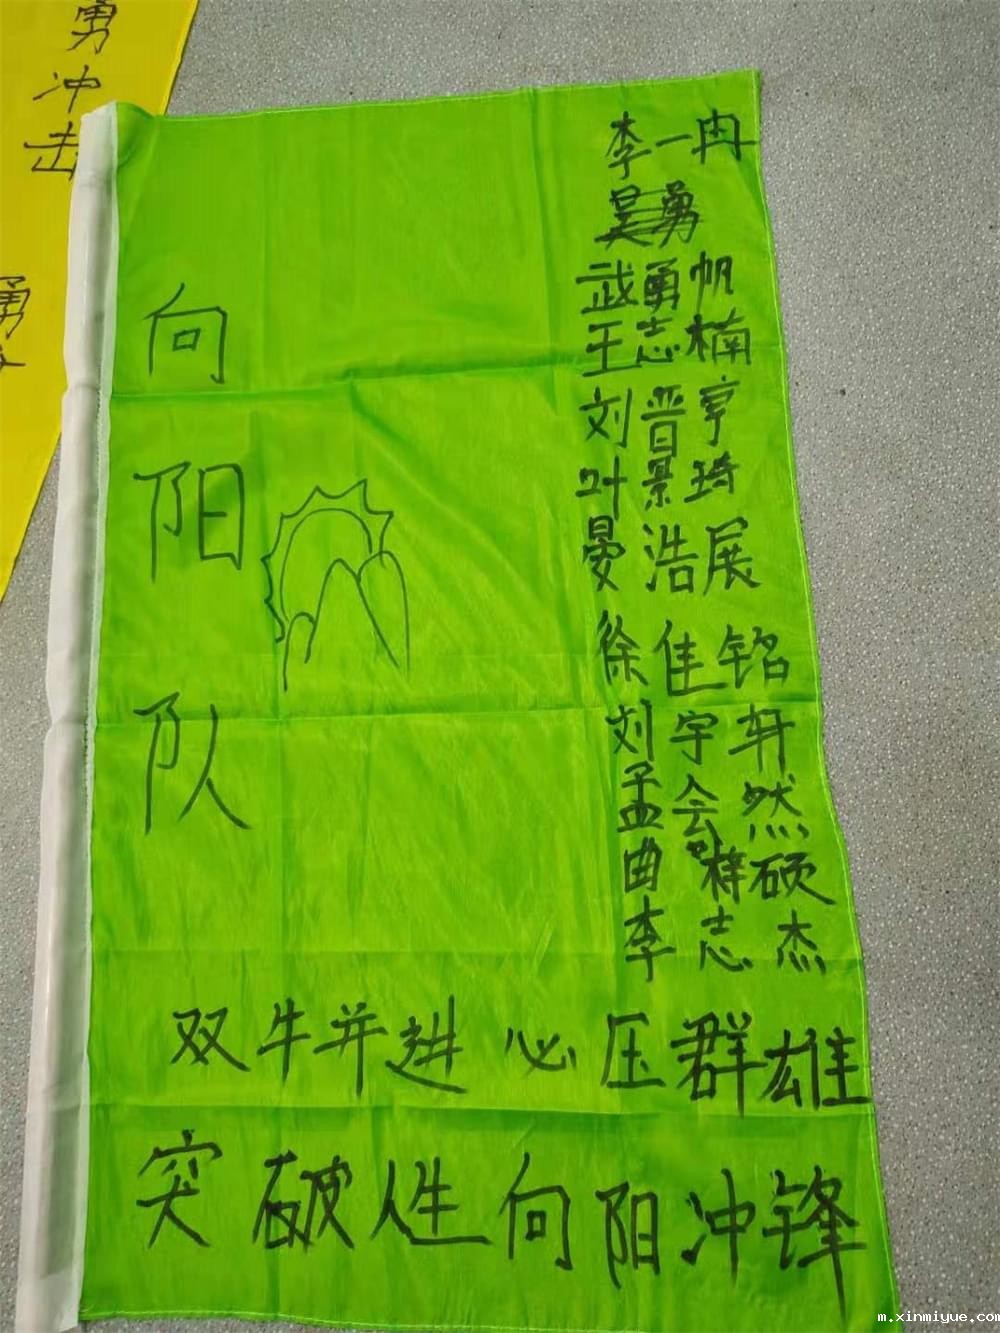 勇
冲
击
勇
李一冉
武勇帆
王志楠
刘晋亨
叶景琦
晏浩展
徐佳铭
刘宇轩
孟会然
曲梓硕
李志杰
向
阳
队
双牛并进 必压群雄
突破人生向阳冲锋
m.xinmiyue.com